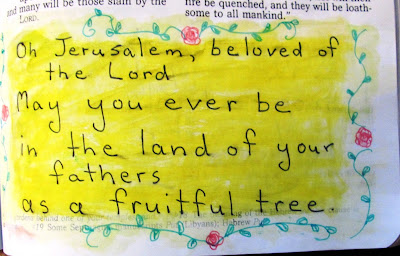 and many will be those slain by the
LORD.
fire be quenched, and they will be loath-
some to all mankind."
Oh Jerusalem, beloved of
the Lord
May you ever be
in the land of your
fathers
as a fruitful tree.
19 Some Sep